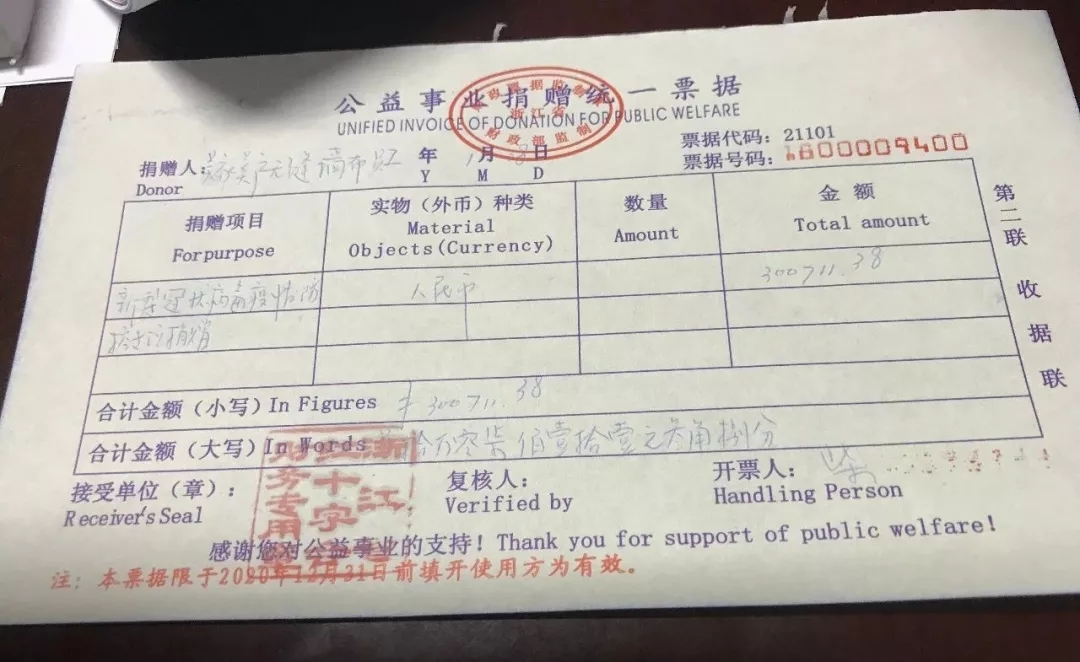 公益事业捐赠统一票据
UNIFIED INVOICE OF DONATION FOR PUBLIC WELFARE
浙江省
财政部监制
票据代码：21101
票据号码：
00009400
捐赠人：
无缝墙布
年 1月 日
Donor
Y M D
捐赠项目
For purpose
实物（外币）种类
Material
Objects(Currency)
数量
Amount
金额
Total amount
新型冠状病毒疫情防
人民币
300711.38
捐赠
合计金额（小写）In Figures
300711.38
合计金额（大写）In Words
拾万零柒佰壹拾壹元叁角捌分
接受单位（章）：
Receiver's Seal
浙江
红十字
财务专用
复核人：
Verified by
开票人：
Handling Person
感谢您对公益事业的支持！Thank you for support of public welfare!
注：本票据限于2020年12月31日前填开使用方为有效。
第二联 收据联